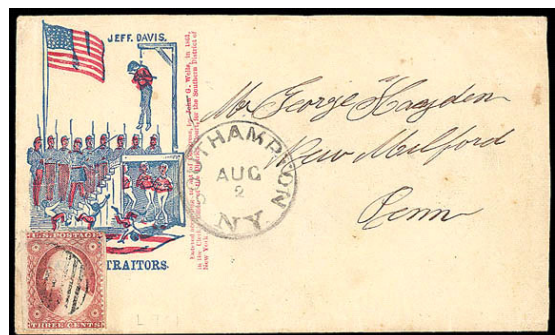 JEFF. DAVIS.
TRAITORS.
Entered according to Act of Congress, by John G. Wells, in 1861,
in the Clerk's Office of the District Court, of the Southern District of
New York.
SOUTHAMPTON
AUG
2
N.Y.
Mr George Hayden
New Milford
Conn
U.S. POSTAGE
THREE CENTS